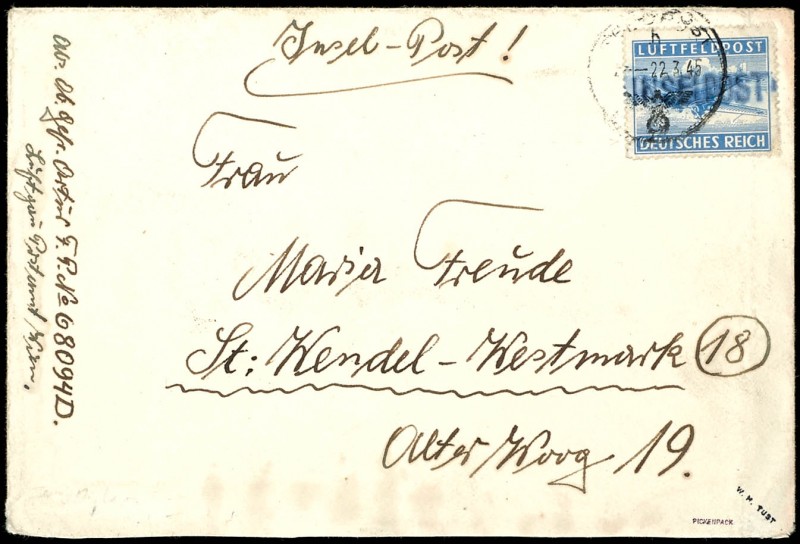 Insel-Post!
22.3.45
LUFTFELDPOST
INSELPOST
DEUTSCHES REICH
Frau
Maria Freude
St: Wendel-Westmark 18
Alter Woog 19.
Ob. Gefr. Artur F. P. No 68094D.
Luftgau Postamt Wien.
PICKENPACK
W. H. TUST